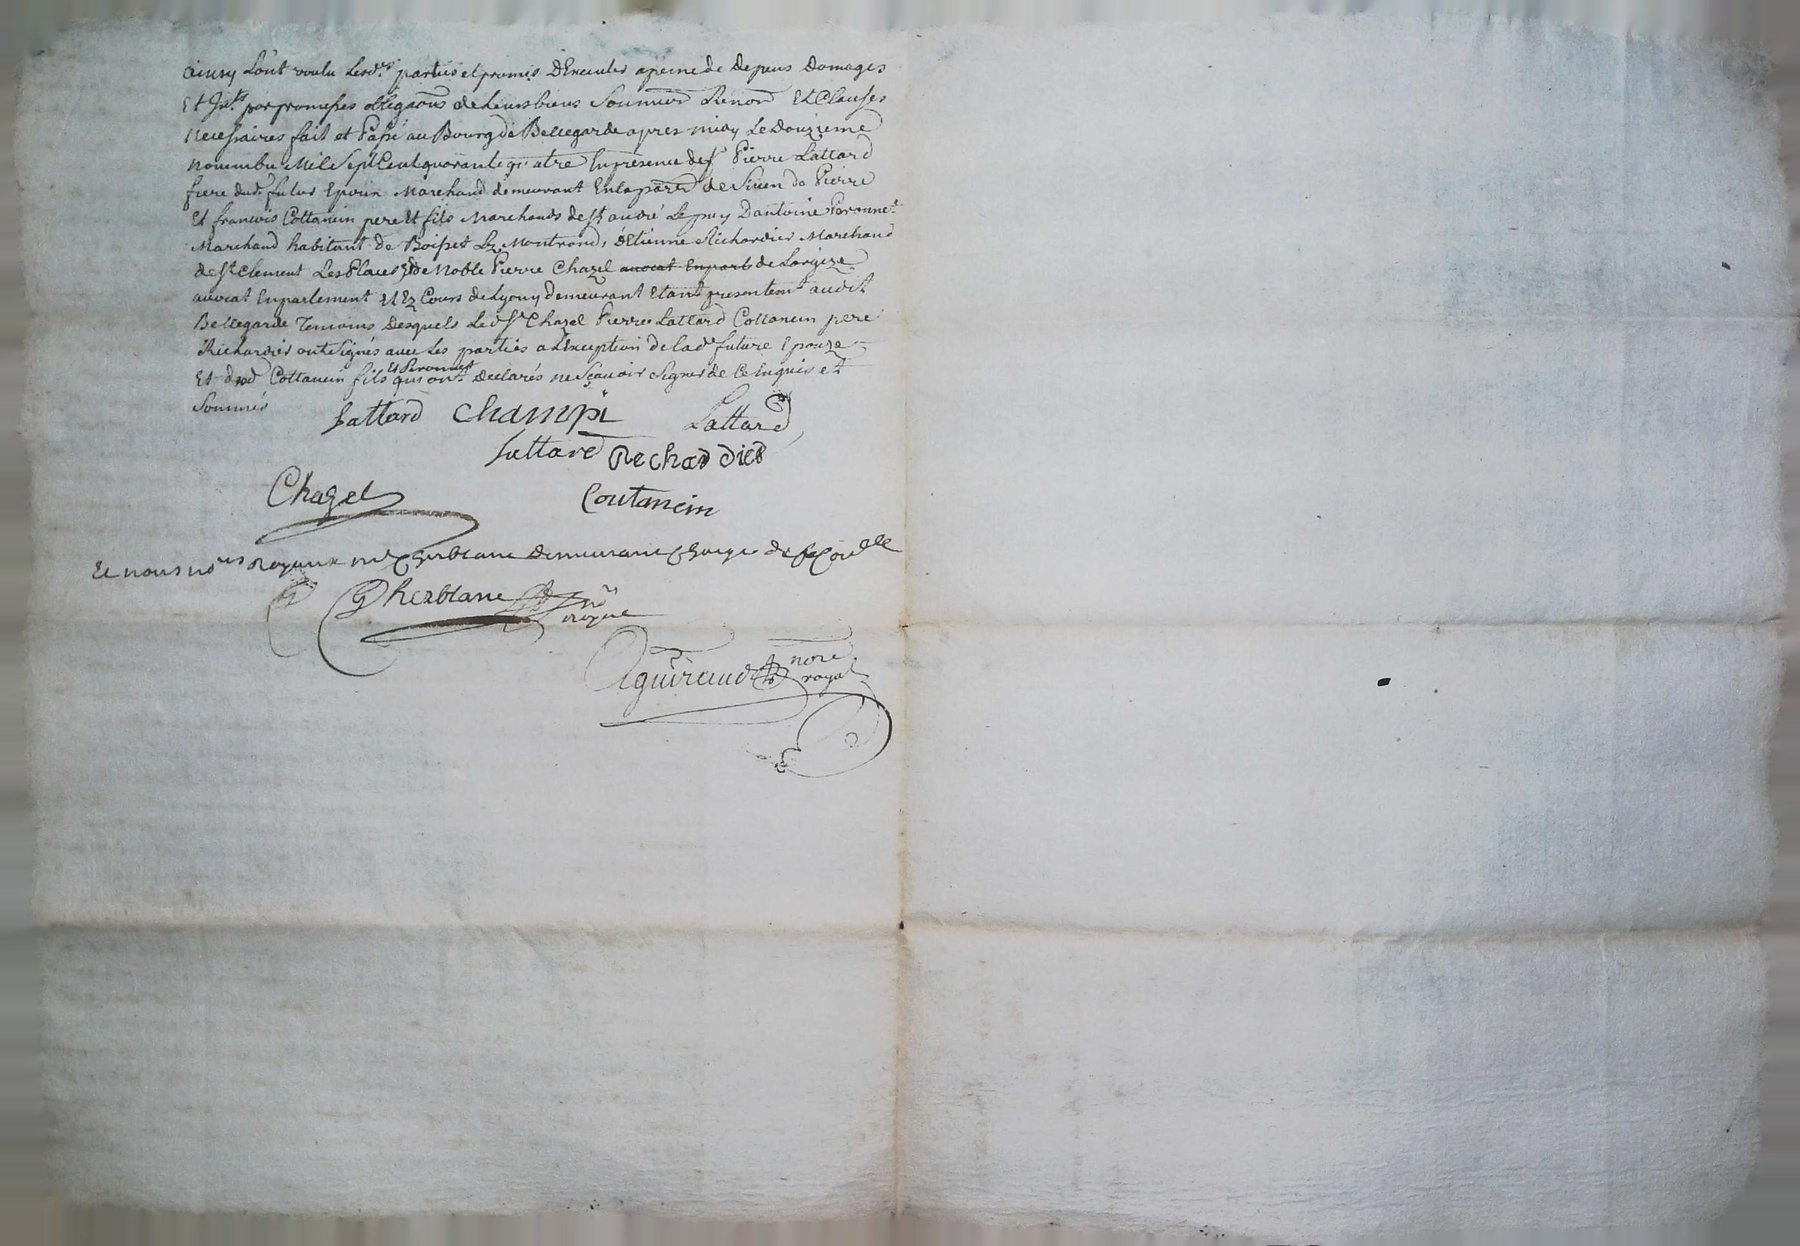 ainsy L'ont voulu Lesd.es parties et promis D'Executer a peine de Depens Domages
Et Jnts par promesses obligaons de Leurs biens Soumion Renon Et Clauses
necessaires fait et Passé au Bourg de Bellegarde apres midy Le Douzieme
novembre Mil Sept Cent quarante quatre En presence de Sr Pierre Lattard
frere dud. futur Epoux Marchand demeurant En la parre de Pierre
Et francois Cottancin pere Et fils Marchands de St andré Le puy D'antoine Peronnet
Marchand habitant de Boisset Lz Montrond, d'Etienne Richardier Marchand
de St Clement Les Places Et de Noble Pierre Chazel avocat En parl de Lorgeze
avocat En parlement et Ez Cours de Lyon y demeurant Etant presentemt audit
Bellegarde Temoins Desquels Led Sr Chazel Pierre Lattard Cottancin pere
Richardier ont Signés avec Les parties a L'Exception de Lade future Epouze
Et dud Cottancin fils et Peronnet qui ont Declarés ne Sçavoir Signer de Ce Enquis et
Sommés
Lattard Champi Lattard
Lattard Rechardier
Chazel Coutancin
Et nous nores Royaux me Gherblanc Demeurant Chargé de
Gherblanc no
Royal
Aguiraud nore
royal